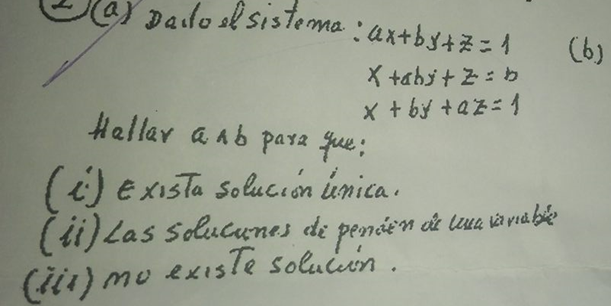 2 (a) Dado el sistema: ax+by+z=1 (b)
x+aby+z=b
x+by+az=1
Hallar a ∧ b para que:
(i) Exista solución única.
(ii) Las soluciones dependen de una variable
(iii) no existe solución.